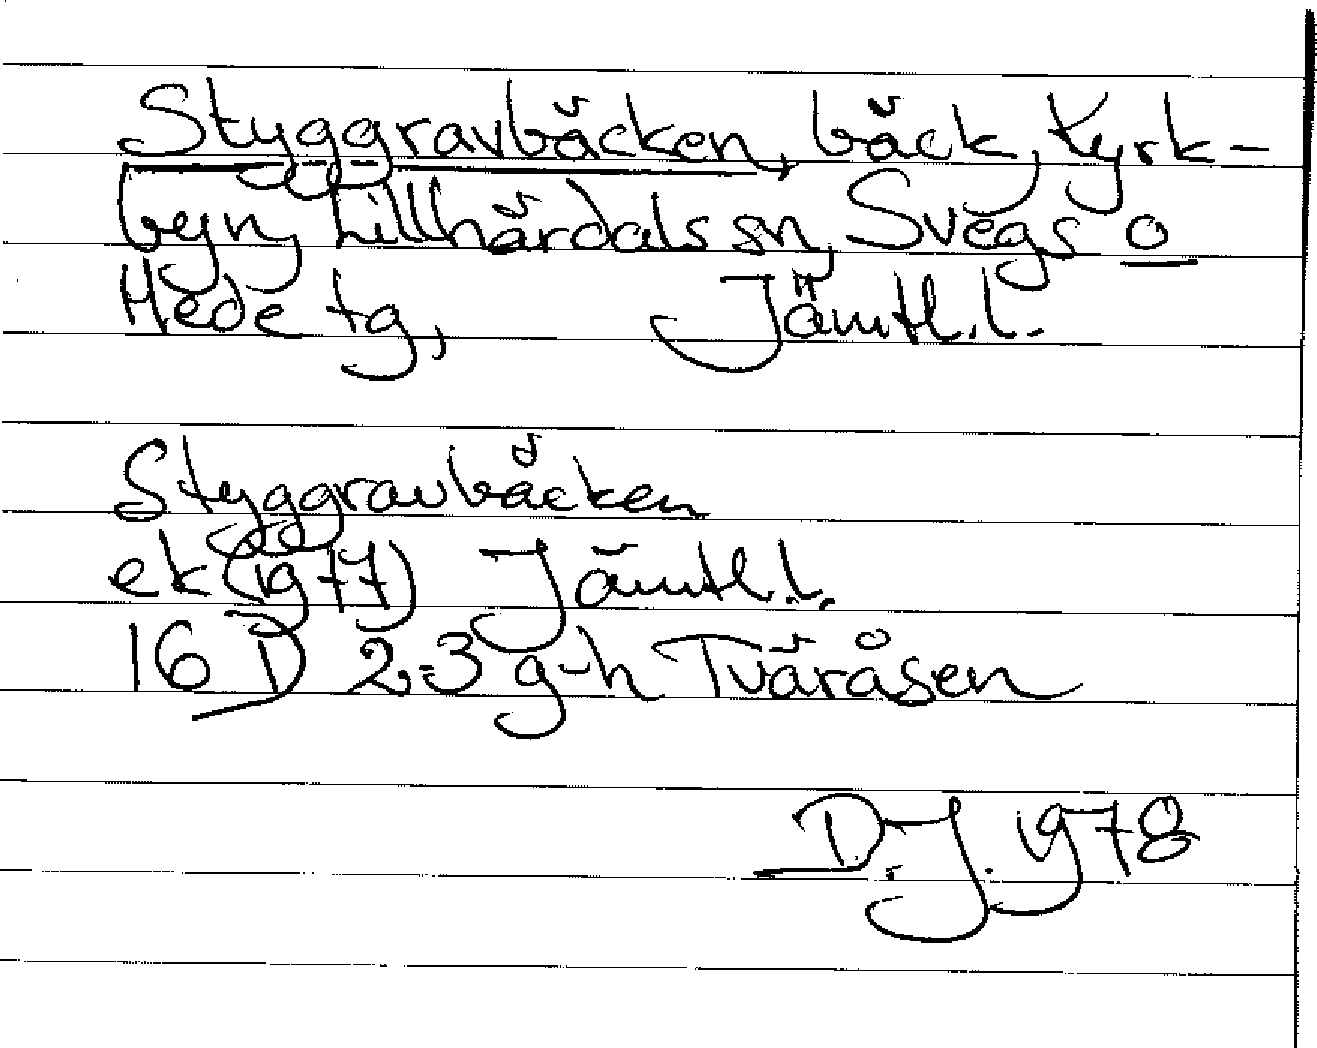 Styggravbäcken, bäck, Kyrk-
byn, Lillhärdals sn, Svegs o
Hede tg, Jämtl. l.
Styggravbäcken
ek (1977) Jämtl. l.
16 D 2-3 g-h Tväråsen
D. J. 1978